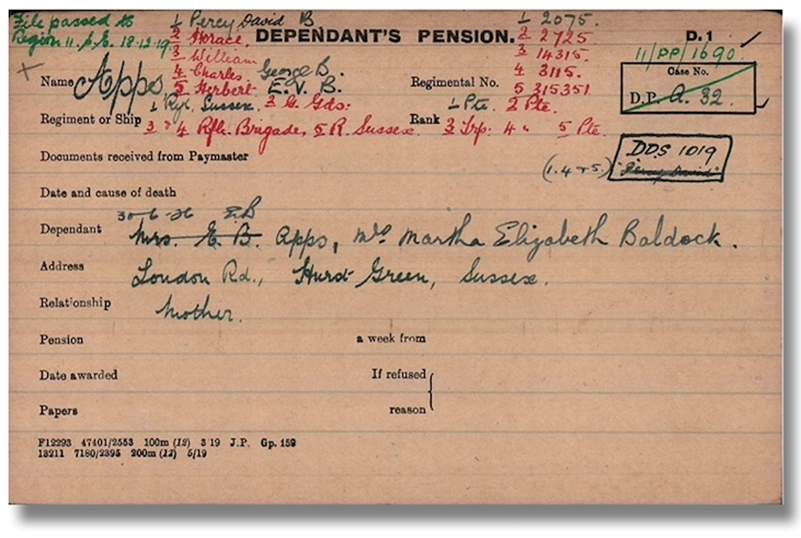 File passed to 1 Percy David B 1 2075.
Region 11. 18.12.19 2 Horace. DEPENDANT'S PENSION. 2 2725 D. 1
3 William 3 14315. 11/PP/1690
4 Charles. George B. 4 3115. Case No.
Name Apps, 5 Herbert E. V. B. Regimental No. 5 315351. D.P. A. 32.
1 Sussex. 2 G. Gds: 1 Pte. 2 Pte.
Regiment or Ship 3 4 Rfle. Brigade, 5 R. Sussex. Rank 3 4 " 5 Pte.
DDS 1019
Documents received from Paymaster (1.4 & 5) "Percy David"
Date and cause of death
30-6-26 E.B
Dependant Mrs. E. B. Apps, Mrs Martha Elizabeth Baldock.
Address London Rd., Hurst Green, Sussex.
Relationship Mother.
Pension a week from
Date awarded If refused
Papers reason
F12293 47401/2553 100m (12) 3 19 J.P. Gp. 159
13211 7180/2395 200m (12) 5/19